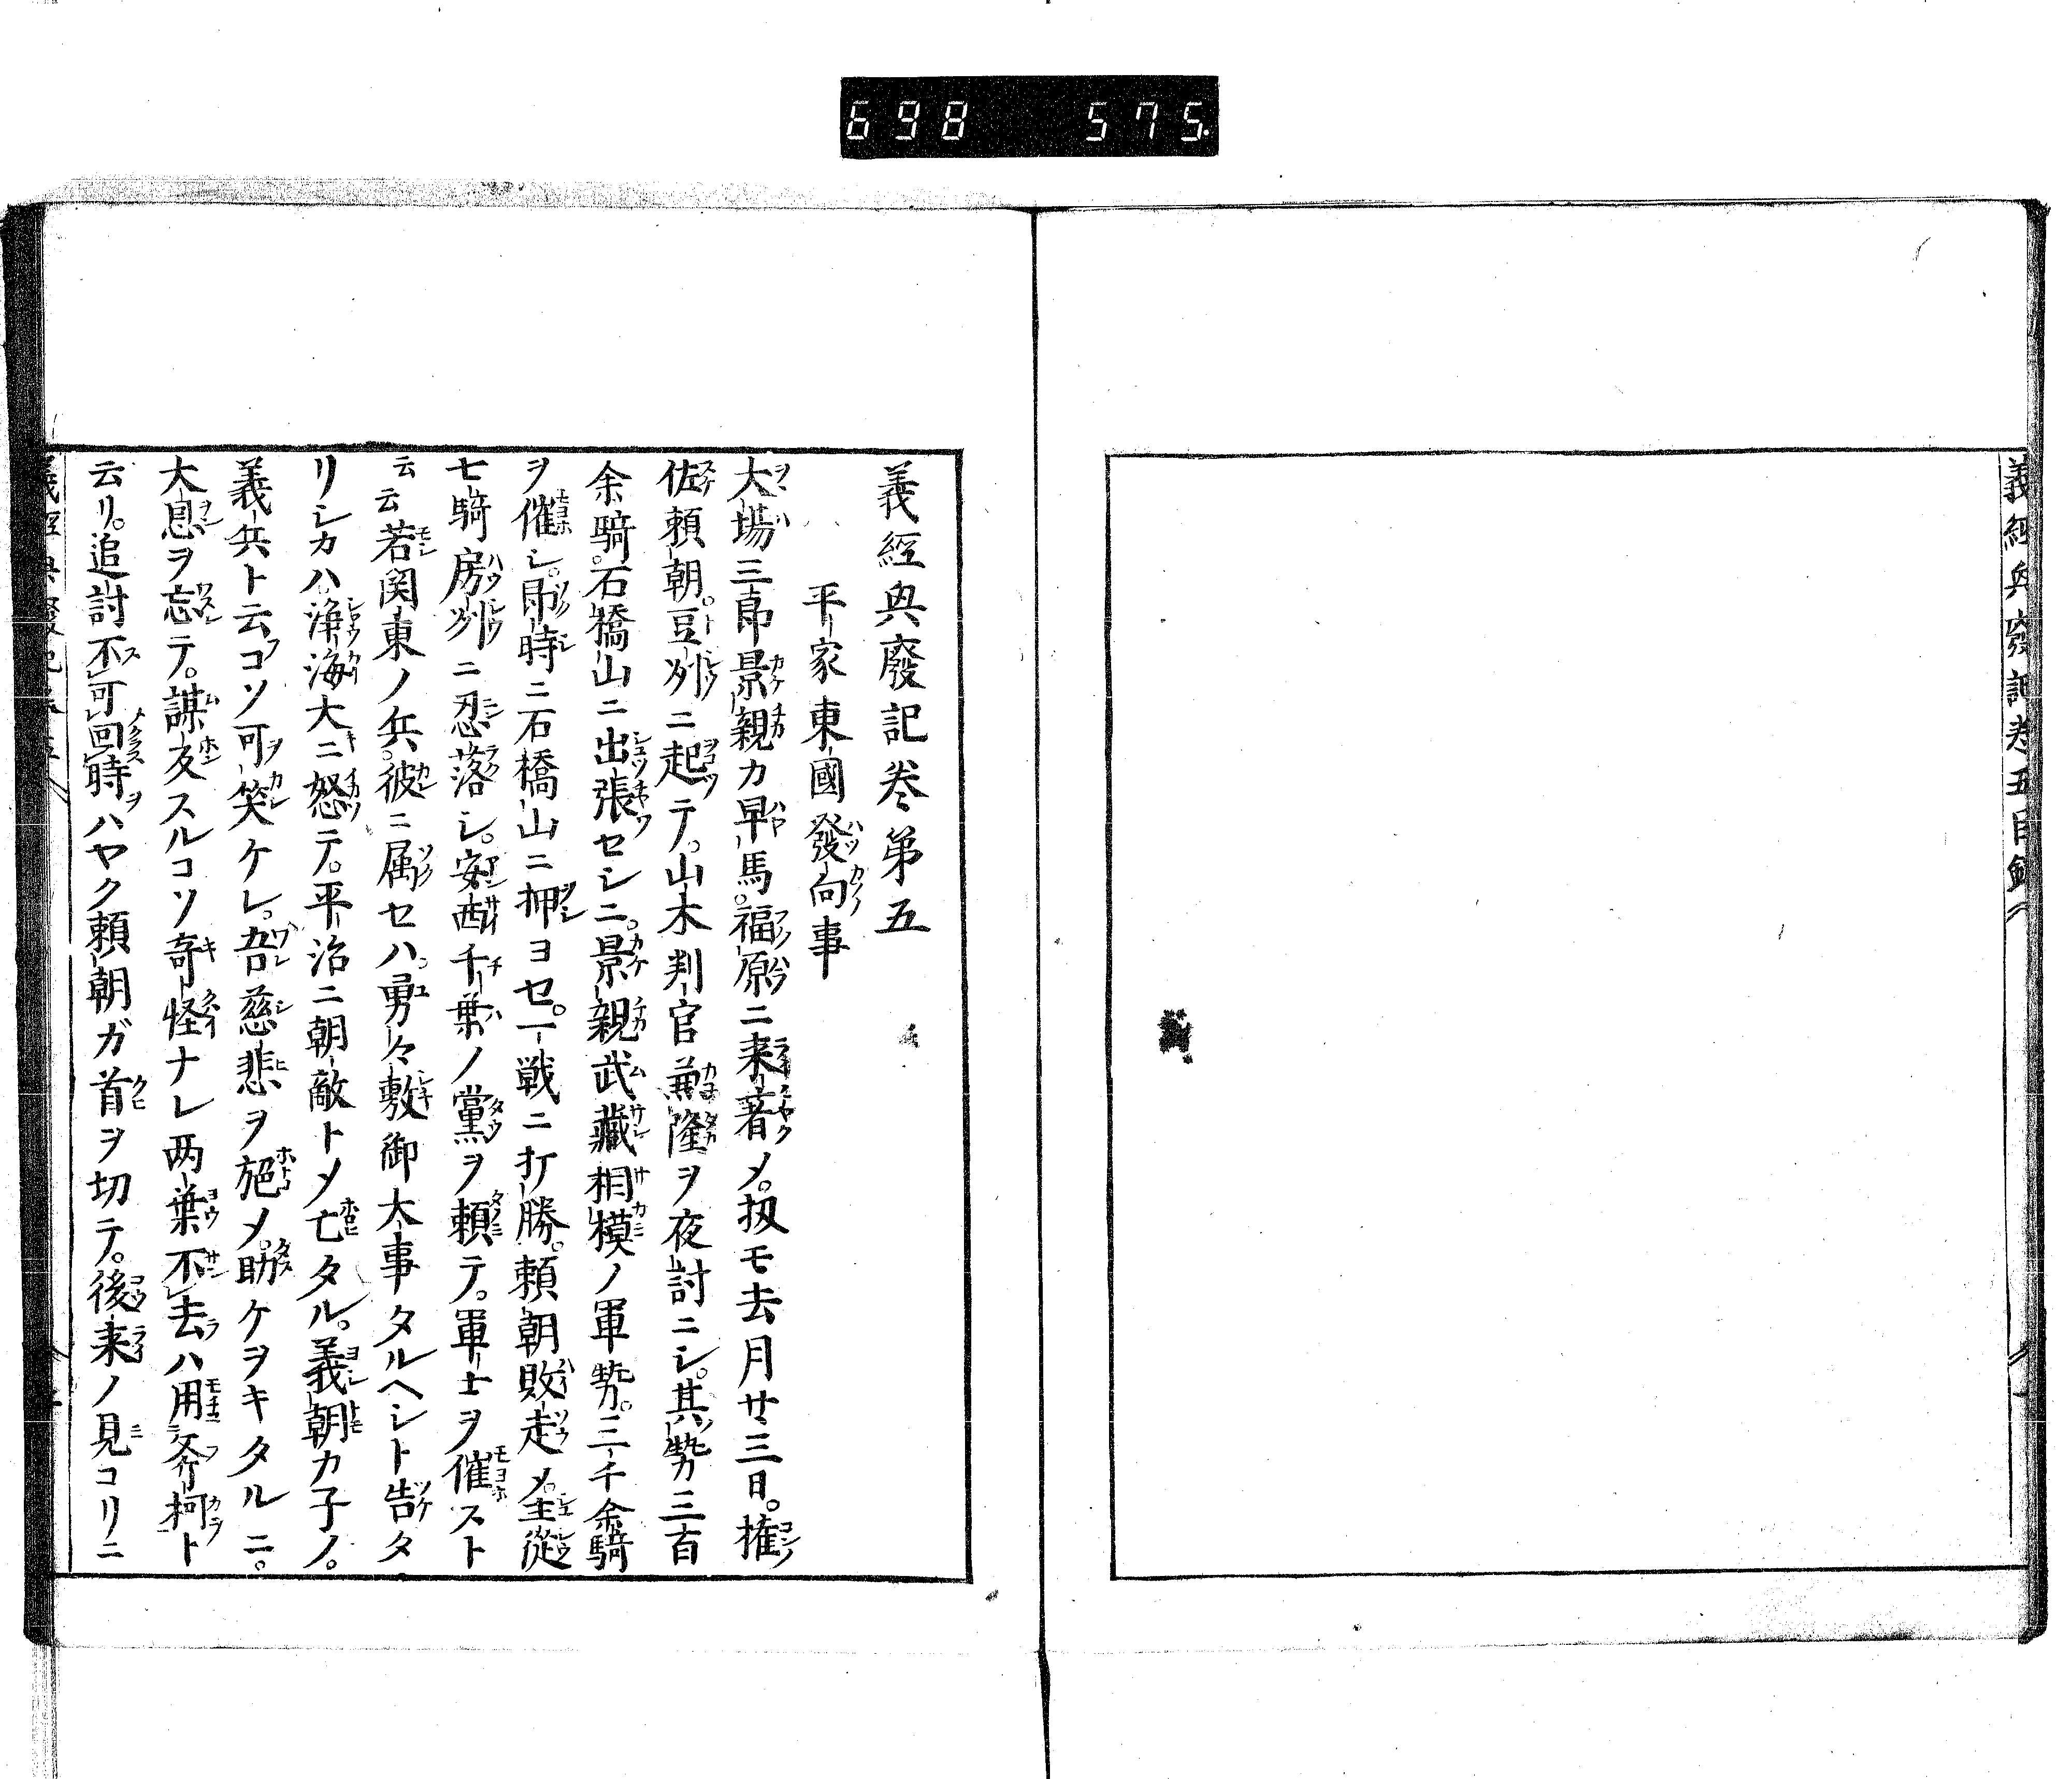 698 575.
義經興廢記卷五目録
義經興廢記卷第五
平家東國發向事
大場三郎景親カ早馬。福原ニ来著メ。扨モ去月廿三日。権
佐頼朝。豆州ニ起テ。山木判官兼隆ヲ夜討ニシ。其勢三百
余騎。石橋山ニ出張セシニ。景親武藏相模ノ軍勢。三千余騎
ヲ催シ。即時ニ石橋山ニ押ヨセ。一戦ニ打勝。頼朝敗走メ。主從
七騎房州ニ忍落シ。安西千葉ノ黨ヲ頼テ。軍士ヲ催スト
云云若関東ノ兵。彼ニ属セハ。勇々敷御大事タルヘシト告タ
リシカハ浄海大ニ怒テ。平治ニ朝敵トメ亡タル。義朝カ子ノ。
義兵ト云コソ可笑ケレ。吾慈悲ヲ施メ。助ケヲキタルニ。
大息ヲ忘テ。謀反スルコソ奇怪ナレ両葉不去ハ用斧柯ト
云リ。追討不可回時ヲハヤク頼朝ガ首ヲ切テ。後来ノ見コリニ